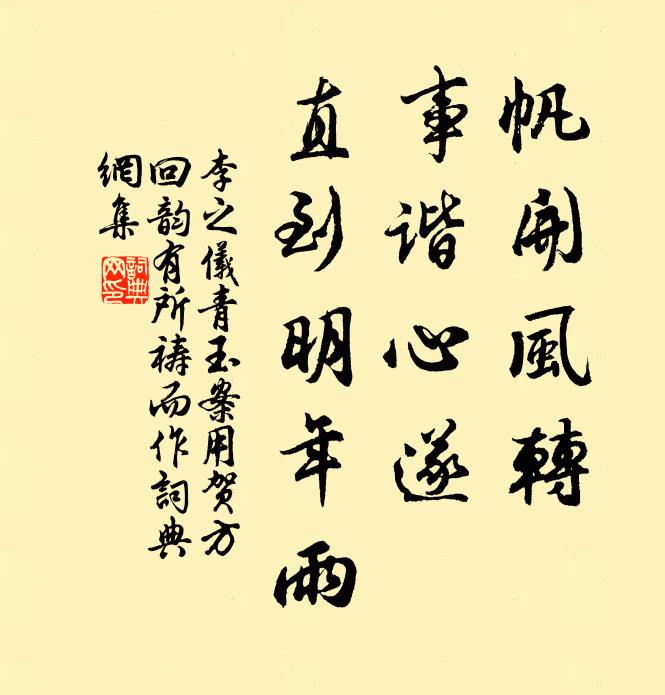 帆開風轉
事諧心遂
直到明年雨
李之儀青玉案用贺方
回韵有所禱而作詞典
網集
詞典
网印